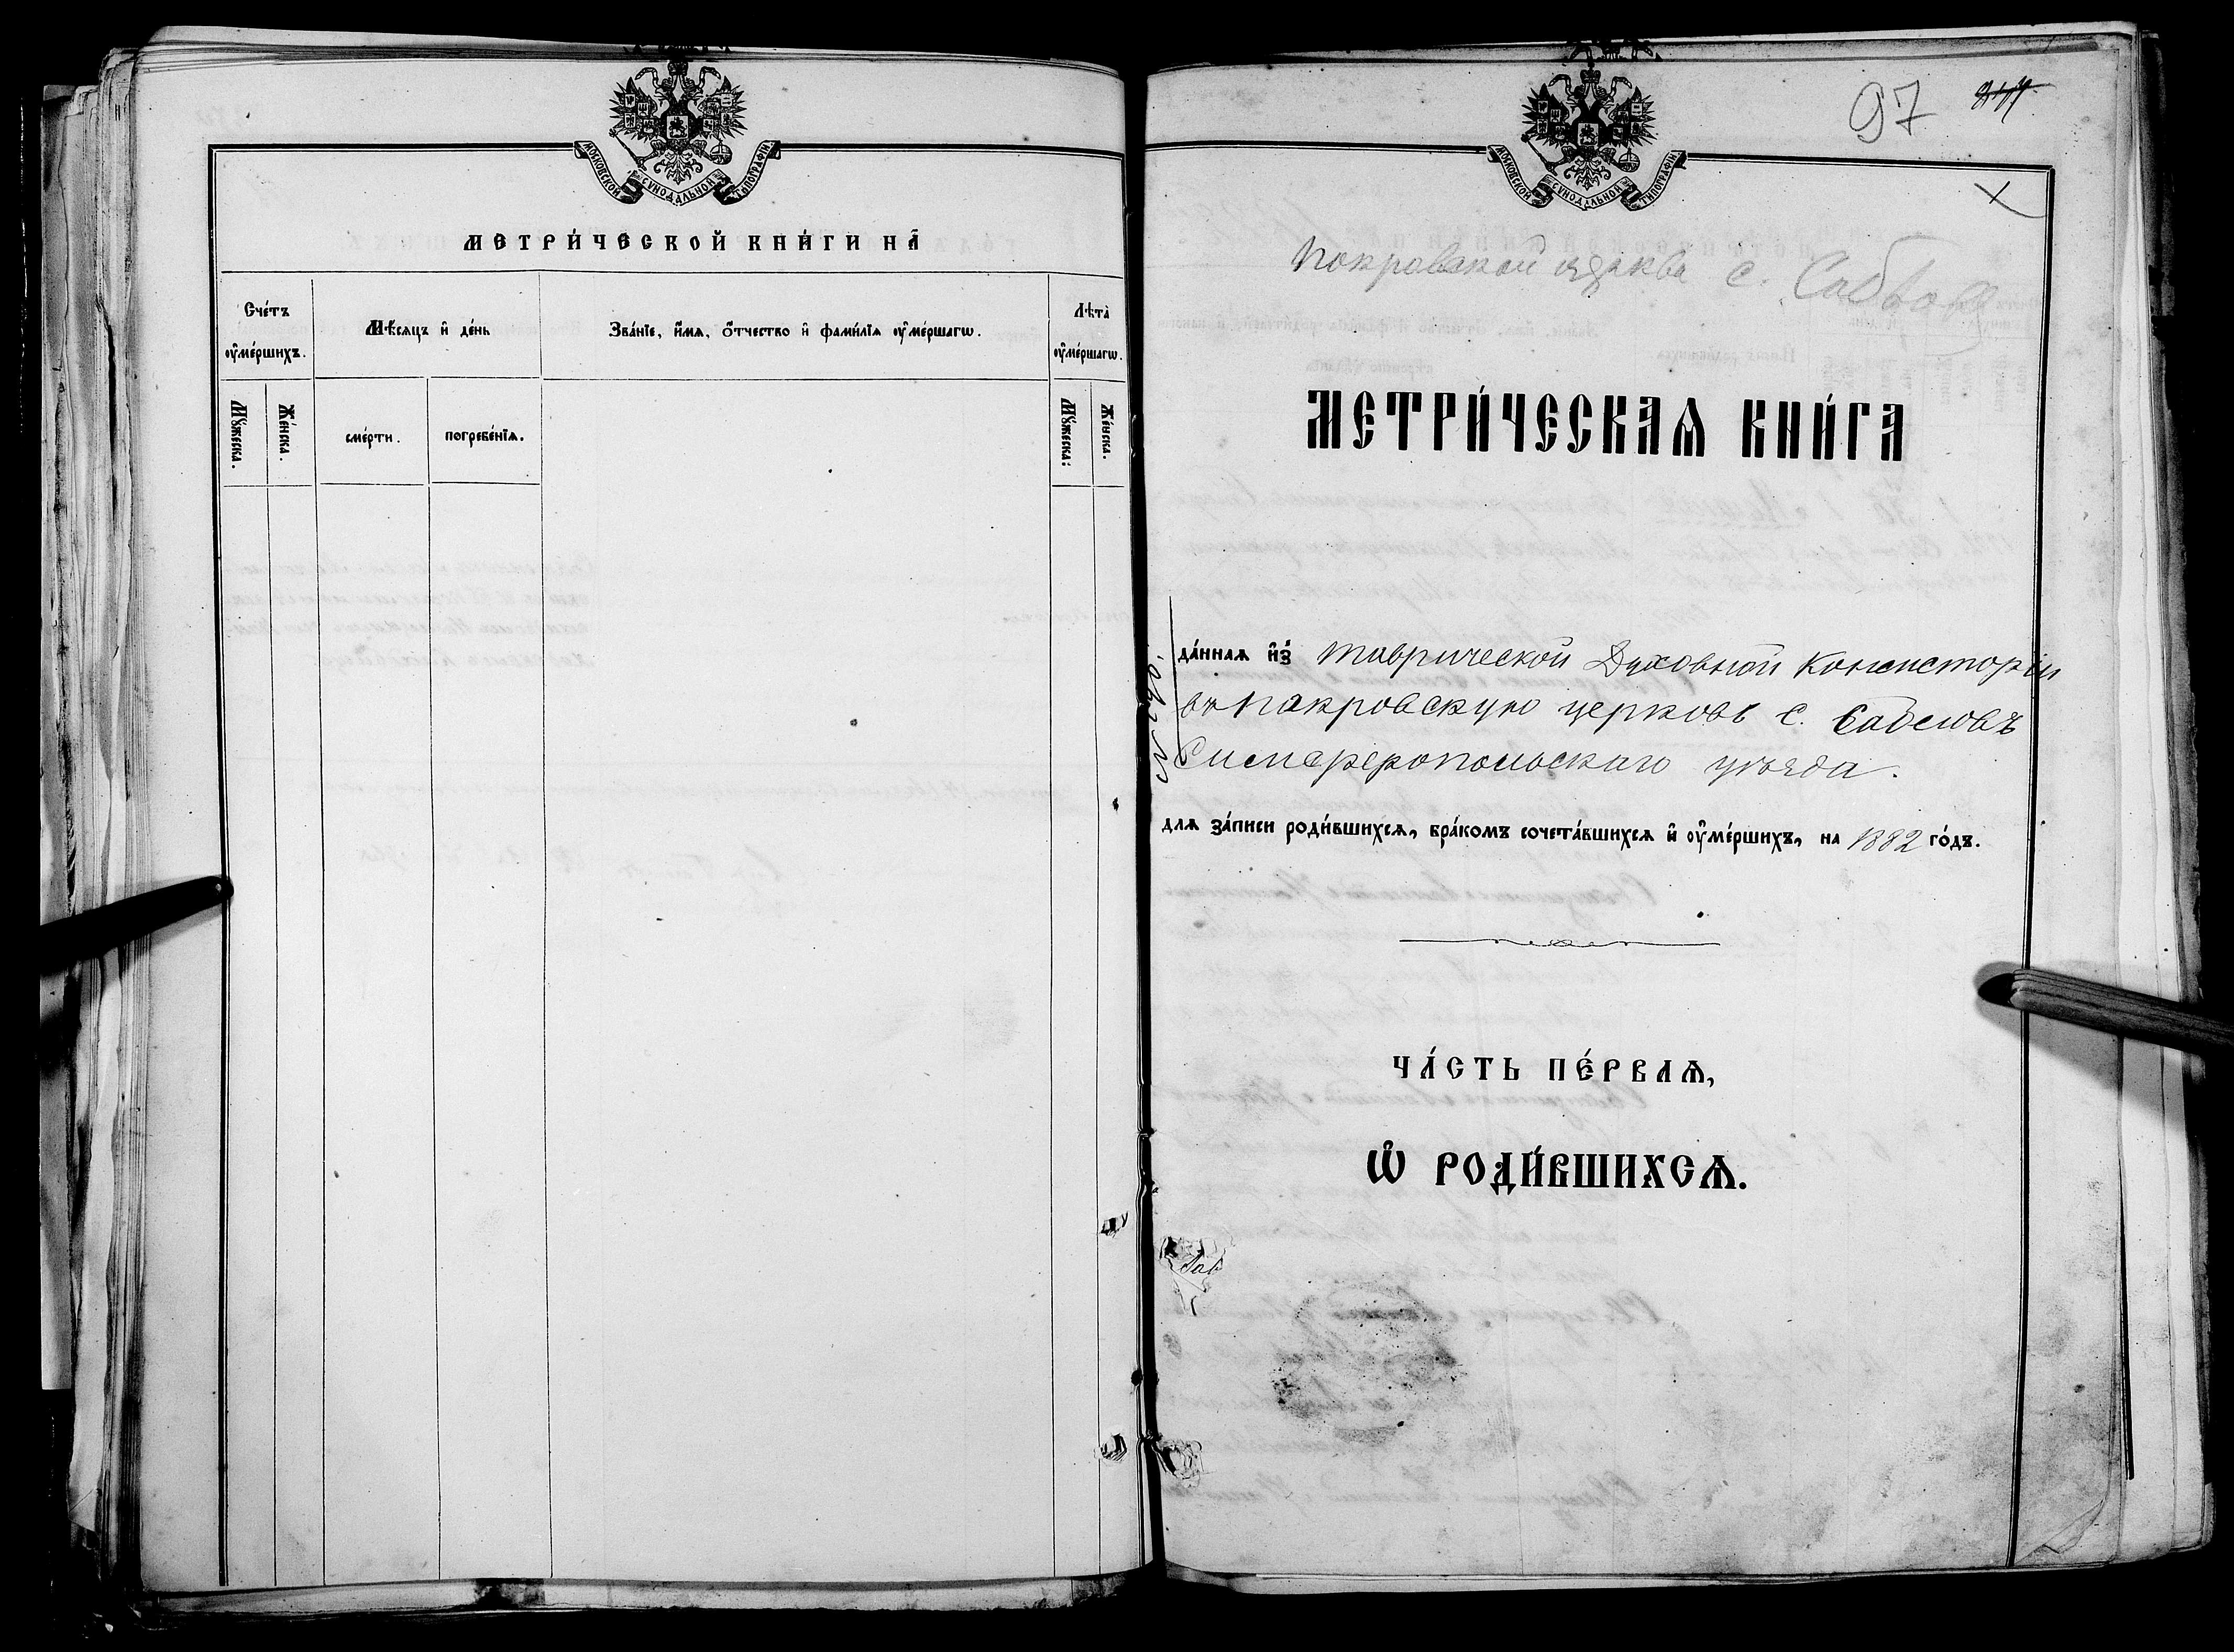 МОСКОВСКОЙ СѴНОДАЛЬНОЙ ТИПОГРАФІИ
МЕТРИ́ЧЕСКОЙ КНИ́ГИ НА̀
Сче́тъ ᲂу҆ме́ршихъ.
Мѣ́сяцъ и҆ де́нь
Зва́нїе, и҆́мѧ, ѻ҆́тчество и҆ фами́лїѧ ᲂу҆ме́ршагѡ.
Лѣ́та ᲂу҆ме́ршагѡ.
Мꙋ́жеска.
Же́нска.
сме́рти.
погребе́нїѧ.
Мꙋ́жеска.
Же́нска.
97
МОСКОВСКОЙ СѴНОДАЛЬНОЙ ТИПОГРАФІИ
Покровской церкви с.
МЕТРИ́ЧЕСКАѦ КНИ́ГА
да́ннаѧ и҆з̾ Таврической Духовной Консисторіи
въ Покровскую церковь с. Сабловъ
Симферопольскаго уѣзда.
длѧ за́писи роди́вшихсѧ, бра́комъ сочета́вшихсѧ и҆ ᲂу҆ме́ршихъ, на 1882 го́дъ.
ЧА́СТЬ ПЕ́РВАѦ,
Ѡ҆ РОДИ́ВШИХСѦ.